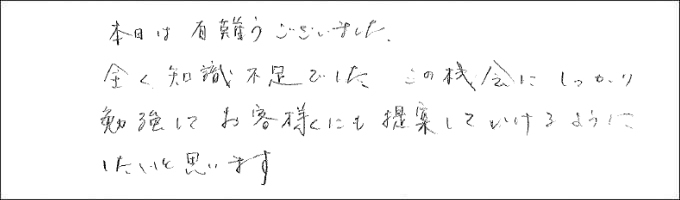 本日は有難うございました。
全く知識不足でした この機会にしっかり
勉強して お客様にも提案していけるように
したいと思います